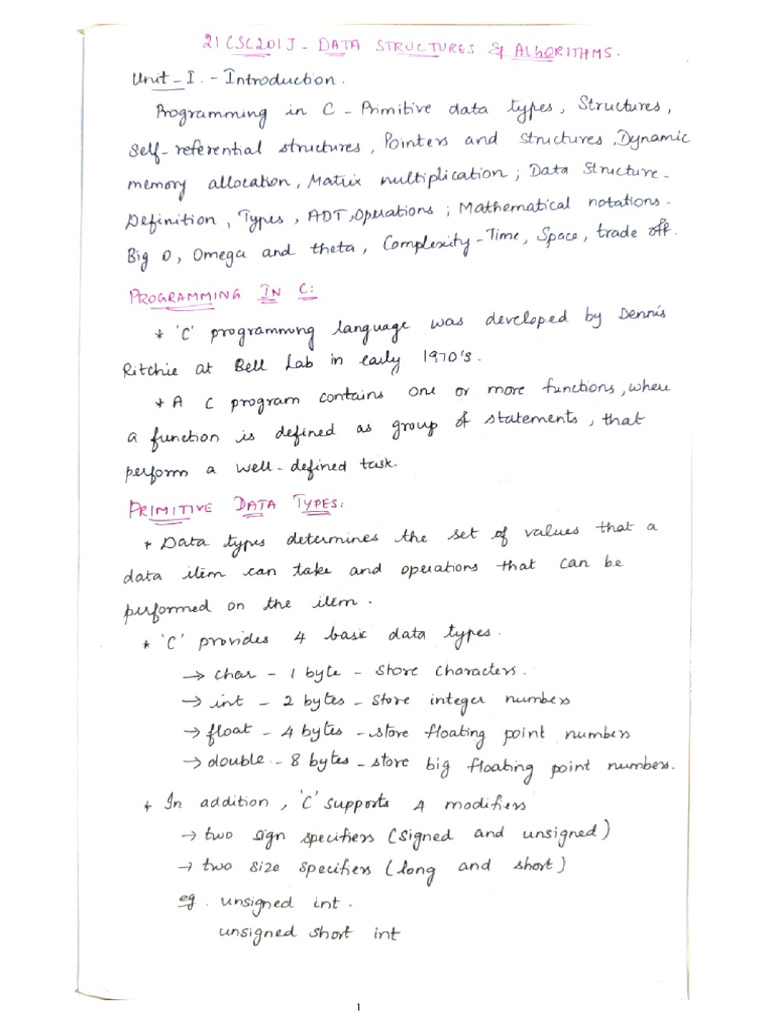 21CSC201J - DATA STRUCTURES & ALGORITHMS.
Unit - I. - Introduction.
Programming in C - Primitive data types, Structures,
Self-referential structures, Pointers and structures, Dynamic
memory allocation, Matrix multiplication; Data Structure-
Definition, Types, ADT, Operations; Mathematical notations-
Big O, Omega and theta, Complexity - Time, Space, trade off.
PROGRAMMING IN C:
* 'C' programming language was developed by Dennis
Ritchie at Bell Lab in early 1970's.
* A C program contains one or more functions, where
a function is defined as group of statements, that
perform a well-defined task.
PRIMITIVE DATA TYPES:
* Data types determines the set of values that a
data item can take and operations that can be
performed on the item.
* 'C' provides 4 basic data types.
→ char - 1 byte - store characters.
→ int - 2 bytes - store integer numbers
→ float - 4 bytes - store floating point numbers
→ double - 8 bytes - store big floating point numbers.
* In addition, 'C' supports 4 modifiers
→ two sign specifiers (signed and unsigned)
→ two size specifiers (long and short)
eg. unsigned int.
unsigned short int
1